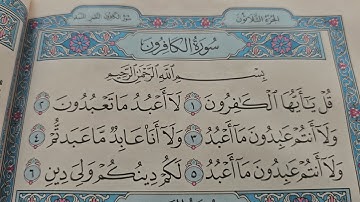 الجزء الثلاثون
سورة الكافرون
بِسْمِ اللَّهِ الرَّحْمَٰنِ الرَّحِيمِ
قُلْ يَٰٓأَيُّهَا ٱلْكَٰفِرُونَ ١ لَآ أَعْبُدُ مَا تَعْبُدُونَ ٢
وَلَآ أَنتُمْ عَٰبِدُونَ مَآ أَعْبُدُ ٣ وَلَآ أَنَا۠ عَابِدٌ مَّا عَبَدتُّمْ ٤
وَلَآ أَنتُمْ عَٰبِدُونَ مَآ أَعْبُدُ ٥ لَكُمْ دِينُكُمْ وَلِىَ دِينِ ٦